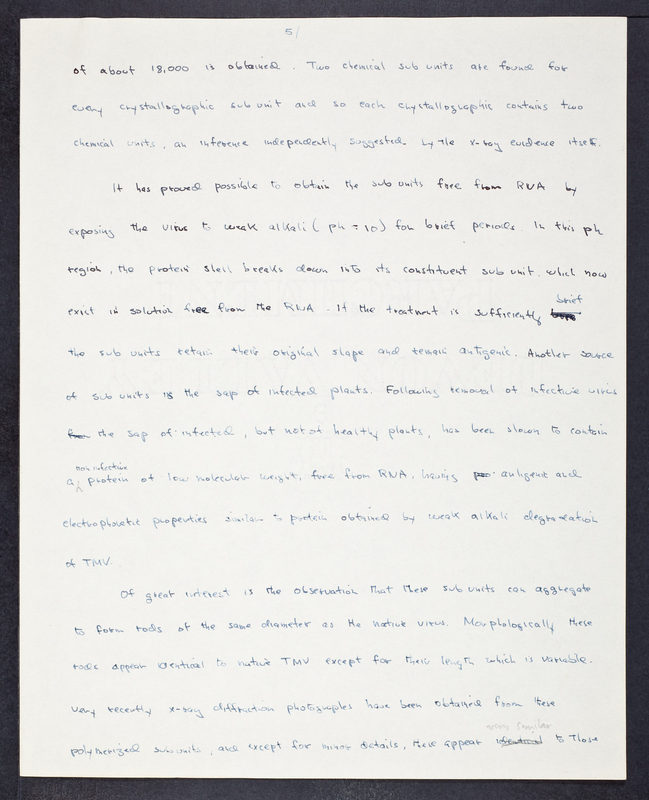 5/
of about 18,000 is obtained. Two chemical sub units are found for
every crystallographic sub unit and so each crystallographic contains two
chemical units, an inference independently suggested by the x-ray evidence itself.
It has proved possible to obtain the sub units free from RNA by
exposing the virus to weak alkali (ph = 10) for brief periods. In this ph
region, the protein shell breaks down into its constituent sub unit, which now
exist in solution free from the RNA. If the treatment is sufficiently brief
the sub units retain their original shape and remain antigenic. Another source
of sub units is the sap of infected plants. Following removal of infective virus
from the sap of infected, but not of healthy plants, has been shown to contain
a non infective protein of low molecular weight, free from RNA, having antigenic and
electrophoretic properties similar to protein obtained by weak alkali degradation
of TMV.
Of great interest is the observation that these sub units can aggregate
to form rods of the same diameter as the native virus. Morphologically these
rods appear identical to native TMV except for their length which is variable.
Very recently x-ray diffraction photographs have been obtained from these
polymerized sub units, and except for minor details, these appear identical very similar to those